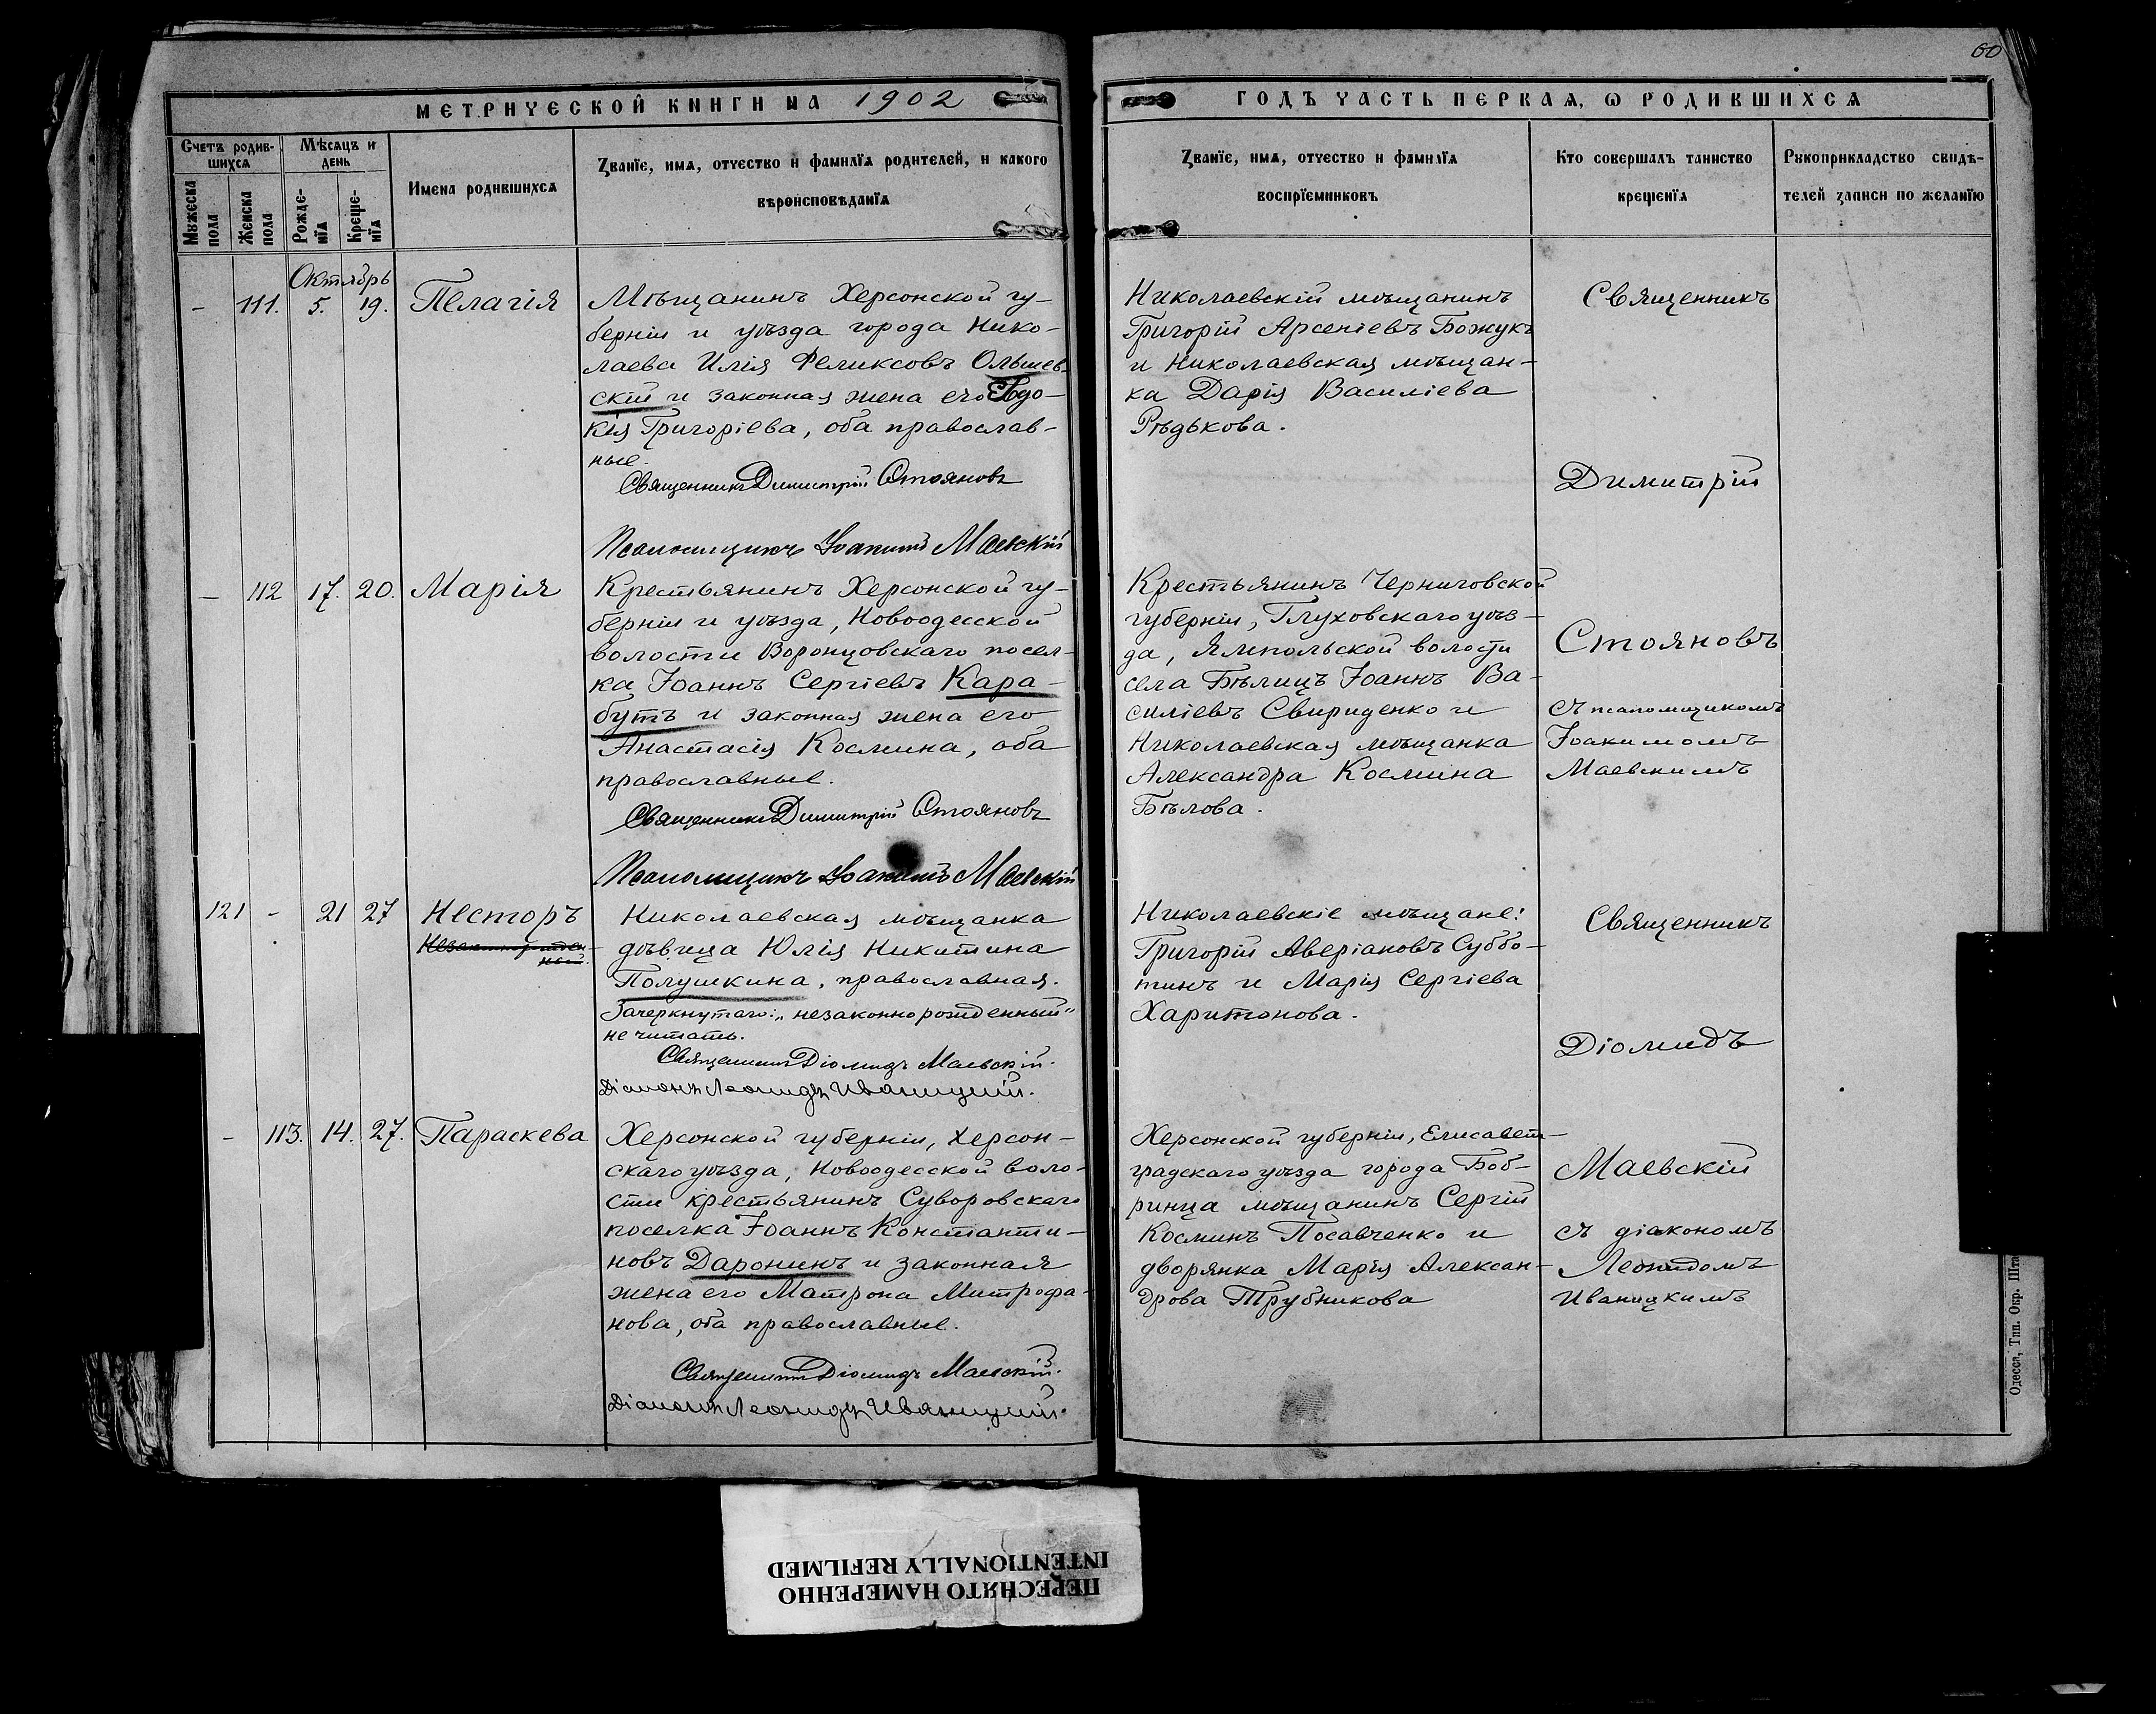 60
МЕТРИЧЕСКОЙ КНИГИ НА 1902
ГОДЪ ЧАСТЬ ПЕРВАЯ, Ѡ РОДИВШИХСЯ
Счетъ родив-
шихся
Мѣсяцъ и
день
Мужеска
пола
Женска
пола
Рожде-
нїя
Креще-
нїя
Имена родившихся
Званїе, имя, отчество и фамилїя родителей, и какого
вѣроисповѣданїя
Званїе, имя, отчество и фамилїя
воспрїемниковъ
Кто совершалъ таинство
крещенїя
Рукоприкладство свидѣ-
телей записи по желанїю
Октябрь
- 111. 5. 19. Пелагія
Мѣщанинъ Херсонской гу-
берніи и уѣзда города Нико-
лаева Илія Феликсовъ Ольшев-
скій и законная жена его Евдо-
кія Григоріева, оба православ-
ные.
Священникъ Димитрій Стояновъ
Псаломщикъ Іоакимъ Маевскій
Николаевскій мѣщанинъ
Григорій Арсеніевъ Божукъ
и Николаевская мѣщан-
ка Дарія Василіева
Рѣдькова.
Священникъ
Димитрій
Стояновъ
съ псаломщикомъ
Іоакимомъ
Маевскимъ
- 112 17. 20. Марія
Крестьянинъ Херсонской гу-
берніи и уѣзда, Новоодесской
волости Воронцовскаго посел-
ка Іоаннъ Сергіевъ Кара-
бутъ и законная жена его
Анастасія Космина, оба
православные.
Священникъ Димитрій Стояновъ
Псаломщикъ Іоакимъ Маевскій
Крестьянинъ Черниговской
губерніи, Глуховскаго уѣз-
да, Ямпольской волости
села Бѣлицъ Іоаннъ Ва-
силіевъ Свириденко и
Николаевская мѣщанка
Александра Космина
Бѣлова.
121 - 21 27 Несторъ
Незаконнорожден-
ный.
Николаевская мѣщанка
дѣвица Юлія Никитина
Полушкина, православная.
Зачеркнутаго: „незаконнорожденный"
не читать.
Священникъ Діомидъ Маевскій.
Діаконъ Леонидъ Иваницкій.
Николаевскіе мѣщане:
Григорій Аверіановъ Суббо-
тинъ и Марія Сергіева
Харитонова.
Священникъ
Діомидъ
Маевскій
съ діакономъ
Леонидомъ
Иваницкимъ
- 113. 14. 27. Параскева
Херсонской губерніи, Херсон-
скаго уѣзда, Новоодесской воло-
сти крестьянинъ Суворовскаго
поселка Іоаннъ Константи-
новъ Даронинъ и законная
жена его Матрона Митрофа-
нова, оба православные.
Священникъ Діомидъ Маевскій.
Діаконъ Леонидъ Иваницкій.
Херсонской губерніи, Елисавет-
градскаго уѣзда города Боб-
ринца мѣщанинъ Сергій
Косминъ Посавченко и
дворянка Марія Алексан-
дрова Трубникова
Одесса, Тип. Окр. Шта
ПЕРЕСНЯТО НАМЕРЕННО
INTENTIONALLY REFILMED